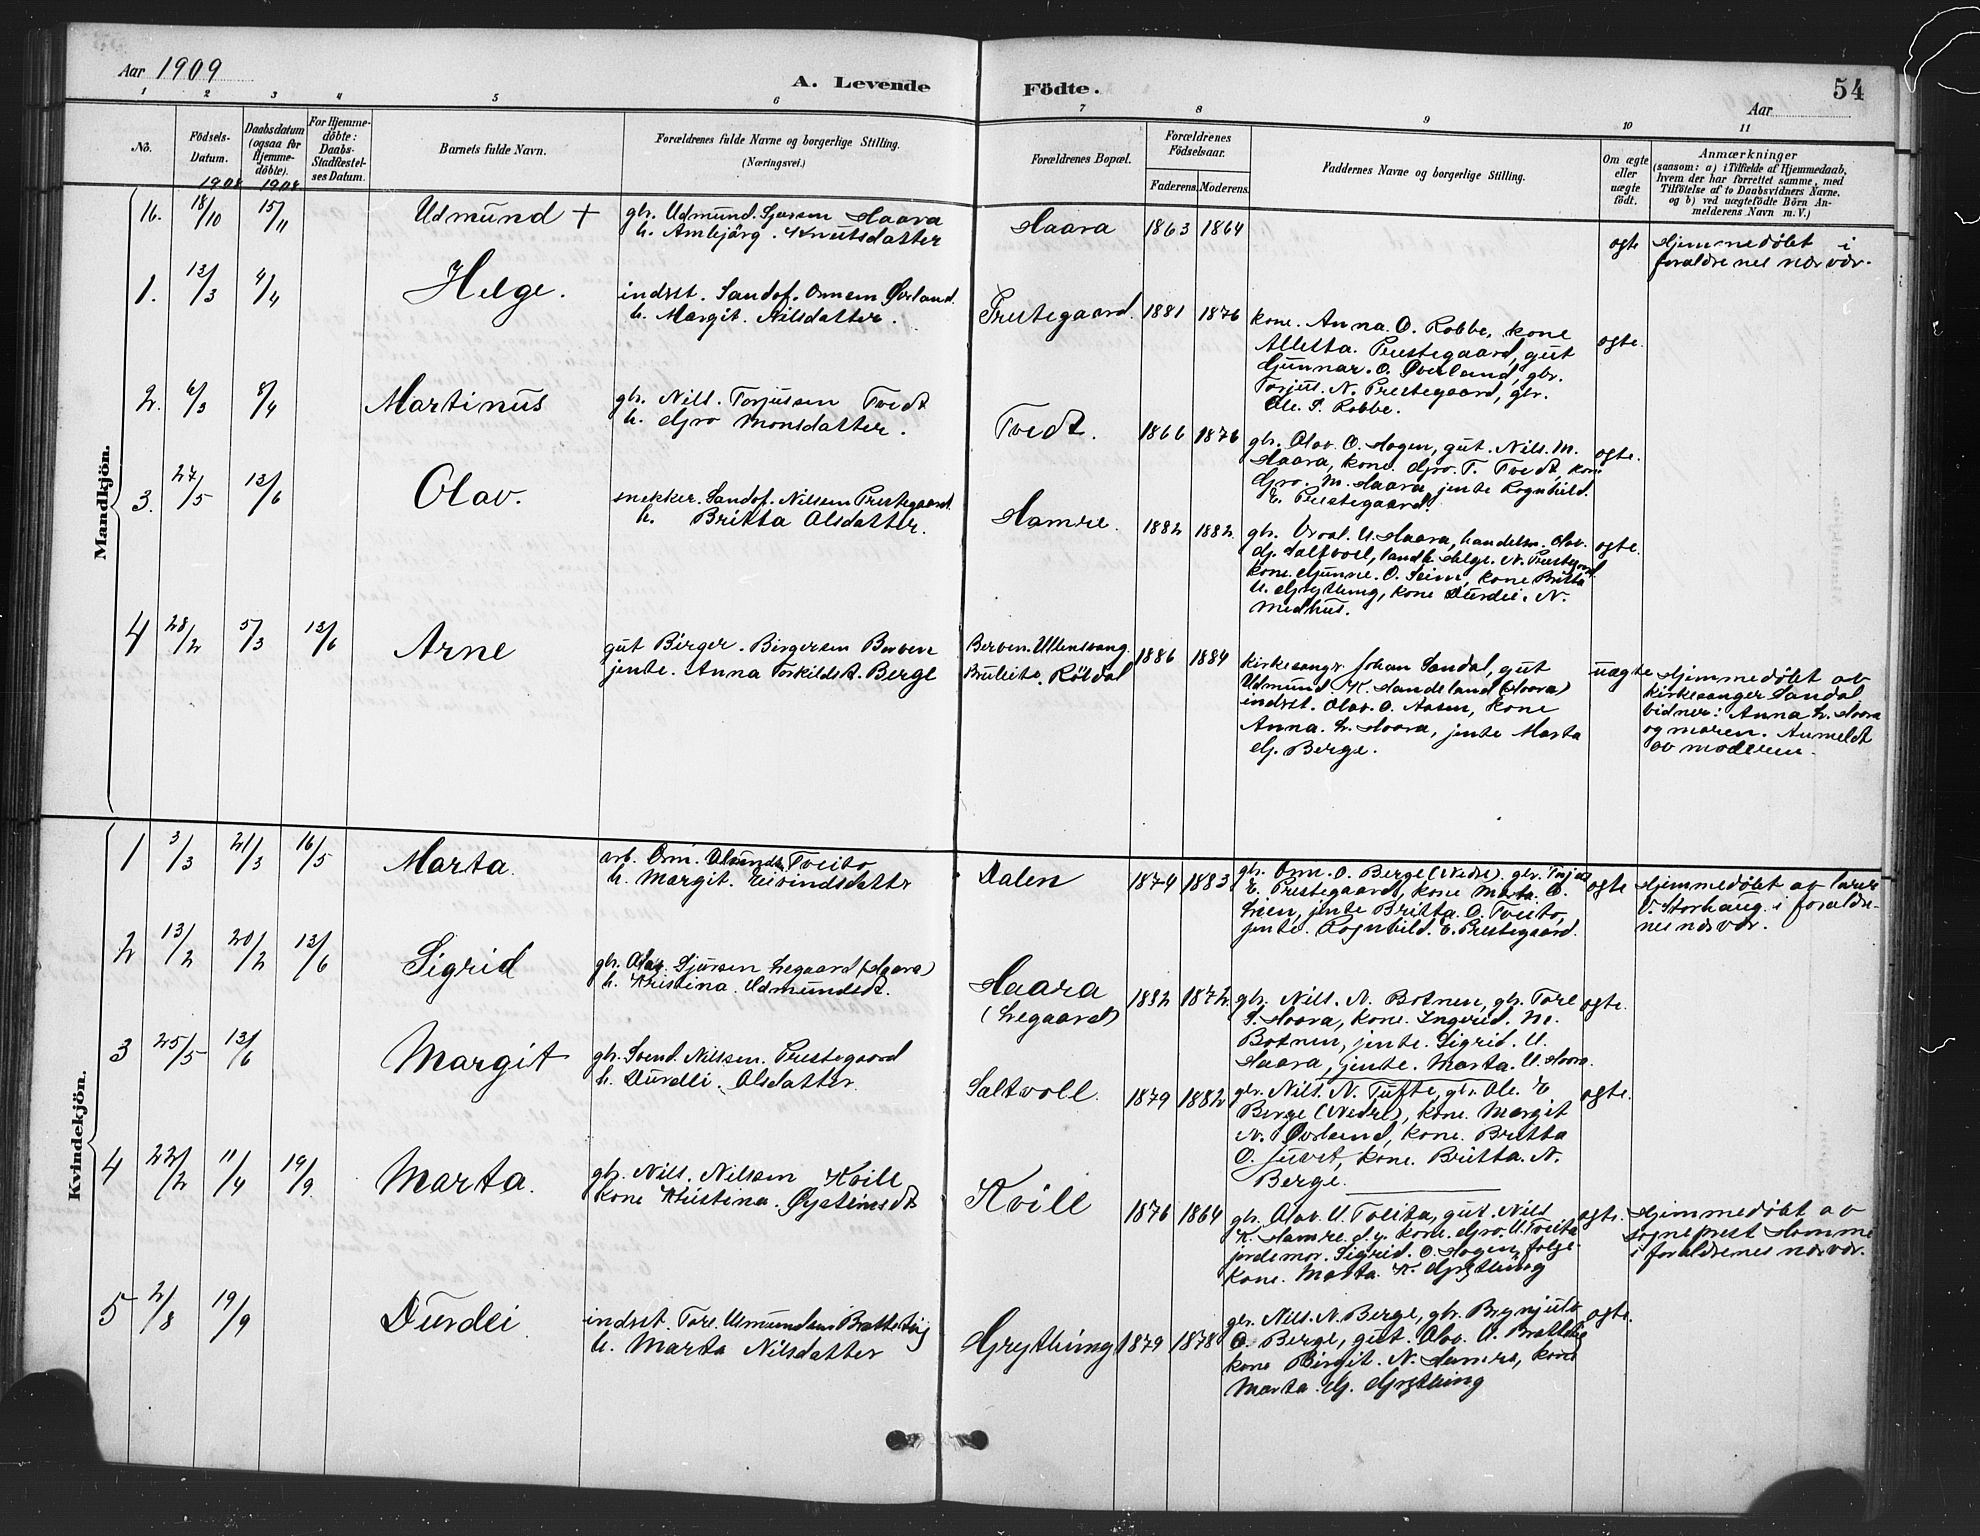 Aar 1909
A. Levende Födte.
54
Aar
1 2 3 4 5 6 7 8 9 10 11
No.
Födsels-Datum.
Daabsdatum (ogsaa for Hjemme-döbte).
For Hjemme-döbte: Daabs-Stadfæstel-ses Datum.
Barnets fulde Navn.
Forældrenes fulde Navne og borgerlige Stilling.
(Næringsvei.)
Forældrenes Bopæl.
Forældrenes Födselsaar.
Faderens. Moderens.
Faddernes Navne og borgerlige Stilling.
Om ægte eller uægte födt.
Anmærkninger
(saasom: a) i Tilfælde af Hjemmedaab,
hvem der har forrettet samme, med
Tilföielse af to Daabsvidners Navne,
og b) ved uægtefödte Börn An-
melderens Navn m. V.)
Mandkjön.
1908 1908
16. 18/10 15/11 Udmund +
gbr. Udmund. Sjursen Haara
h. Ambjörg. Knutsdatter
Haara 1863 1864
ogte
Hjemmedøbt i
foraldrenes nærvær.
1. 13/3 4/4 Helge.
indst. Sandof. Ormsen Øvrland.
h. Margit. Nilsdatter.
Prestegaard. 1881 1876
kone. Anna. O. Rabbe, kone
Alletta. Prestegaard, gut
Gunnar. O. Øverland, gbr.
Torjus. N. Prestegaard, gbr.
Ole. S. Rabbe.
ogte.
2. 6/3 8/4 Martinus
gbr. Nils. Torjussen Tvedt
h. Gro Monsdatter.
Tvedt. 1866 1876
gbr. Olav. O. Hogen, gut. Nils. M.
Haara, kone. Gro. T. Tvedt kone
Gro. M. Haara, jente Rognhild.
E. Prestegaard.
ogte.
3. 27/5 13/6 Olav.
snekker. Sandof. Nilsen Prestegaard
h. Britta Olsdatter.
Hamre. 1882 1882
gbr. Vraal. U. Haara, handelsm. Olav.
G. Saltvoll, landh. Helge. N. Prestegaard
kone. Gunne. O. Seim, kone Britta
U. Grytting, kone Durdei. N.
Medhus.
ogte.
4 28/2 5/3 13/6 Arne
gut Birger. Birgersen Berven
jente. Anna Torkildsd. Berge
Berven. Ullensvang.
Bruleite. Röldal
1886 1884
kirkesangr. Johan Sandal, gut
Udmund K. Handeland (Haara)
indst. Olav. O. Aasen, kone
Anna. L. Haara, jente Marta
G. Berge.
uægte
Hjemmedøbt av
kirkesanger Sandal
vidner: Anna L. Haara
og moren. Anmeldt
av moderen.
Kvindekjön.
1 3/3 21/3 16/5 Marta.
arb. Orm. Tveito
h. Margit. Eivindsdattr
Dalen 1874 1883
gbr. Orm. O. Berge (Nedre). gbr. Torjus
E. Prestegaard, kone Marta. O.
Lien, jente Britta. O. Tveito,
jente. Rognhild. E. Prestegaard.
ogte
Hjemmedøbt av lærer
V. Storhaug i foraldre-
nes nærvær.
2 13/2 20/2 13/6 Sigrid
gbr. Olav. Sjursen Legaard (Haara)
h. Kristina. Udmundsd.
Haara
(Legaard)
1882 1872
gbr. Nils. N. Botnen, gbr. Tore
S. Haara, kone. Ingerid. M.
Botnen, jente. Sigrid. U.
Haara, jente. Marta. U. Haara.
ogte.
3 25/5 13/6 Margit
gbr. Svend. Nilssen. Prestegaard
h. Durdei. Olsdatter.
Saltvoll. 1879 1882
gbr. Nils. N. Tufte, gbr. Ole. E
Berge (Nedre), kone. Margit
N. Øvrland, kone. Britta
O. Juvet, kone. Britta. N.
Berge.
ogte.
4 22/2 11/4 19/9 Marta.
gbr. Nils. Nilssen Kvill
kone Kristina. Øysteinsdt
Kvill 1876 1864
gbr. Olav. U. Tveita, gut. Nils
K. Hamre d. y. kone. Gro. U. Tveita
jordemor. Sigrid. O. Hogen, folge-
kone. Marta. K. Grytting
ogte.
Hjemmedøbt av
sogneprest Homme
i foraldrenes nærvær.
5 2/8 19/9 Durdei
indst. Tore. Udmundsen Bratteteig
h. Marta Nilsdatter
Grytting 1879 1878
gbr. Nils. N. Berge, gbr. Brynjulv
O. Berge, gut. Olav. O. Bratteteig
kone Birgit. N. Hamre, kone
Marta. G. Grytting
ogte.